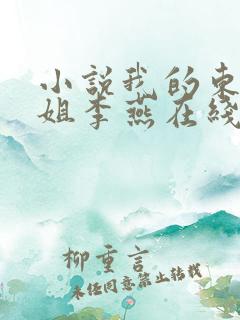 小说我的东
姐李燕在线
柳重言
未经同意禁止转载